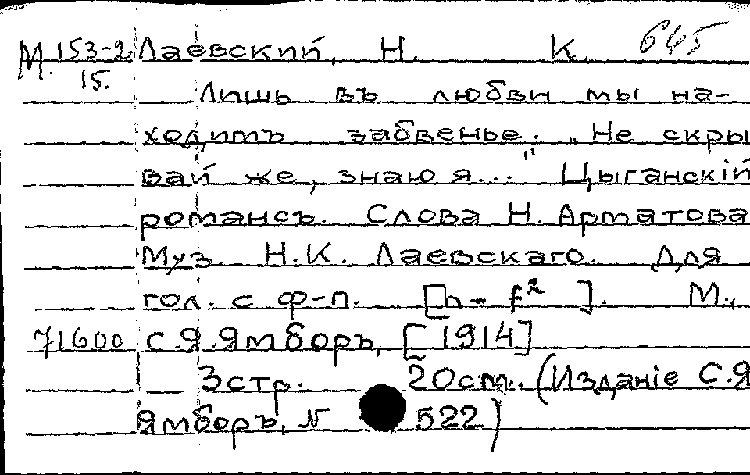 М. 153-2 Лаевский, Н. К. 645
15.
Лишь въ любви мы на-
ходимъ забвенье. „Не скры
вай же, знаю я..." Цыганскій
романсъ. Слова Н. Арматова
Муз. Н.К. Лаевскаго. Для
гол. с ф-п. [h - f² ]. М.,
71600 С.Я. Ямборъ, [1914]
3 стр. 20 см. (Изданіе С.Я
Ямборъ, N 522)